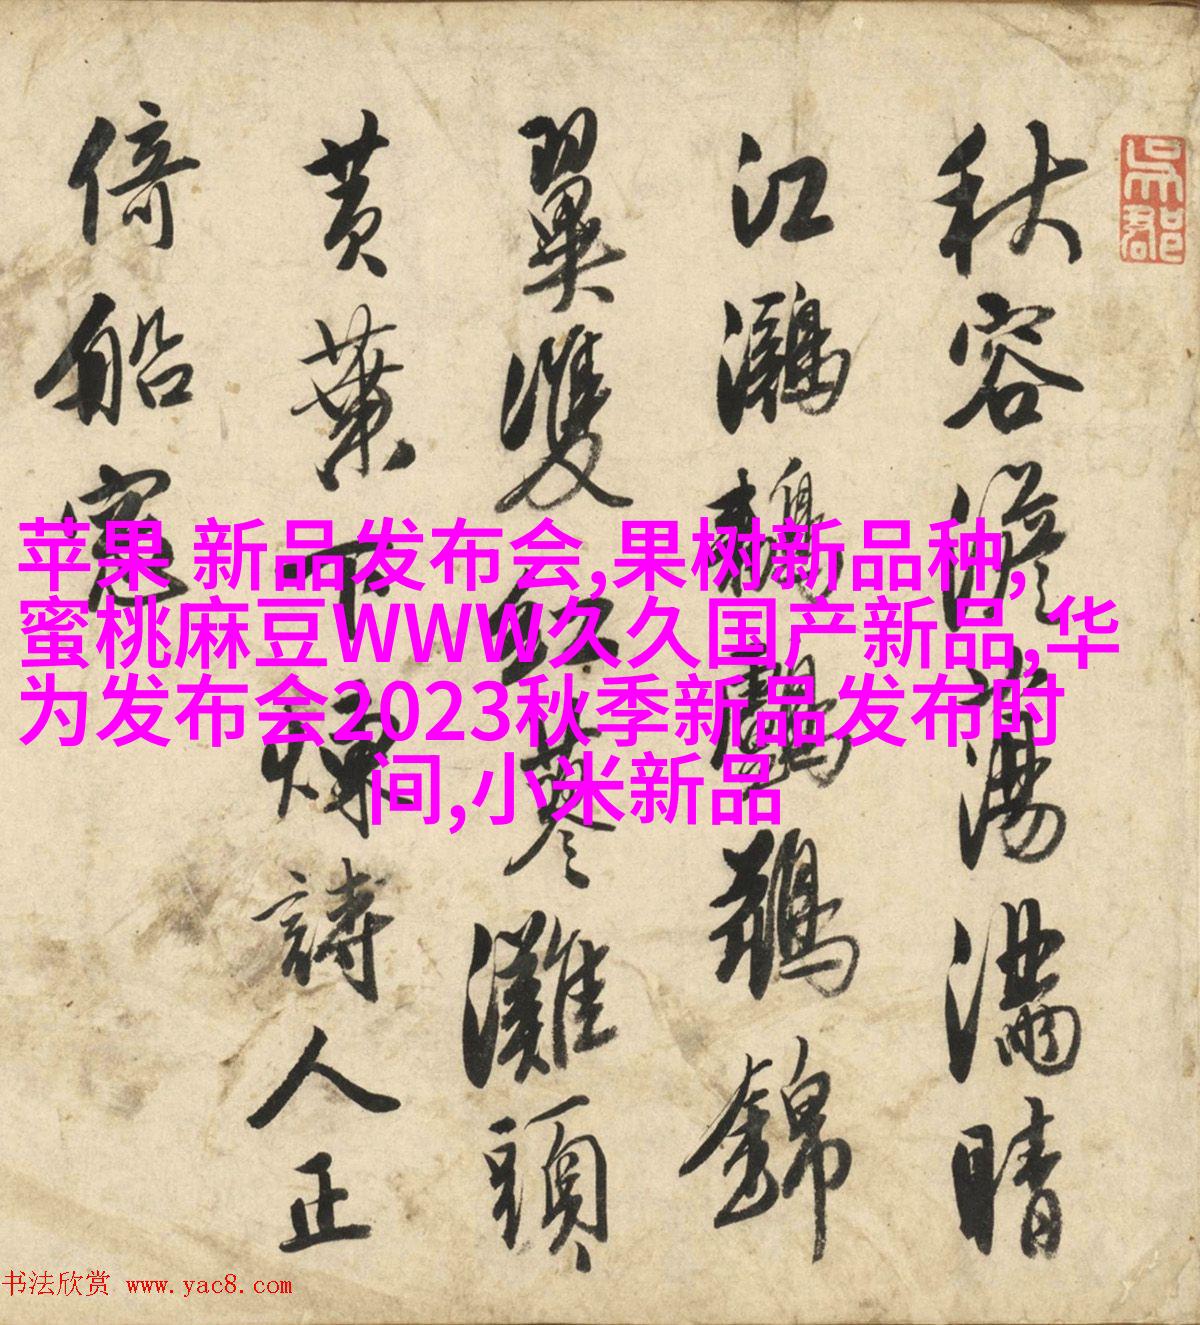 吳郡
秋容澹蕩滿晴
江鸂鶒鸕鶿錦
翼雙紅蓼灘頭
黃葉下煉詩人正
倚船窓
苹果 新品发布会,果树新品种,
蜜桃麻豆WWW久久国产新品,华
为发布会2023秋季新品发布时
间,小米新品
书法欣赏 www.yac8.com